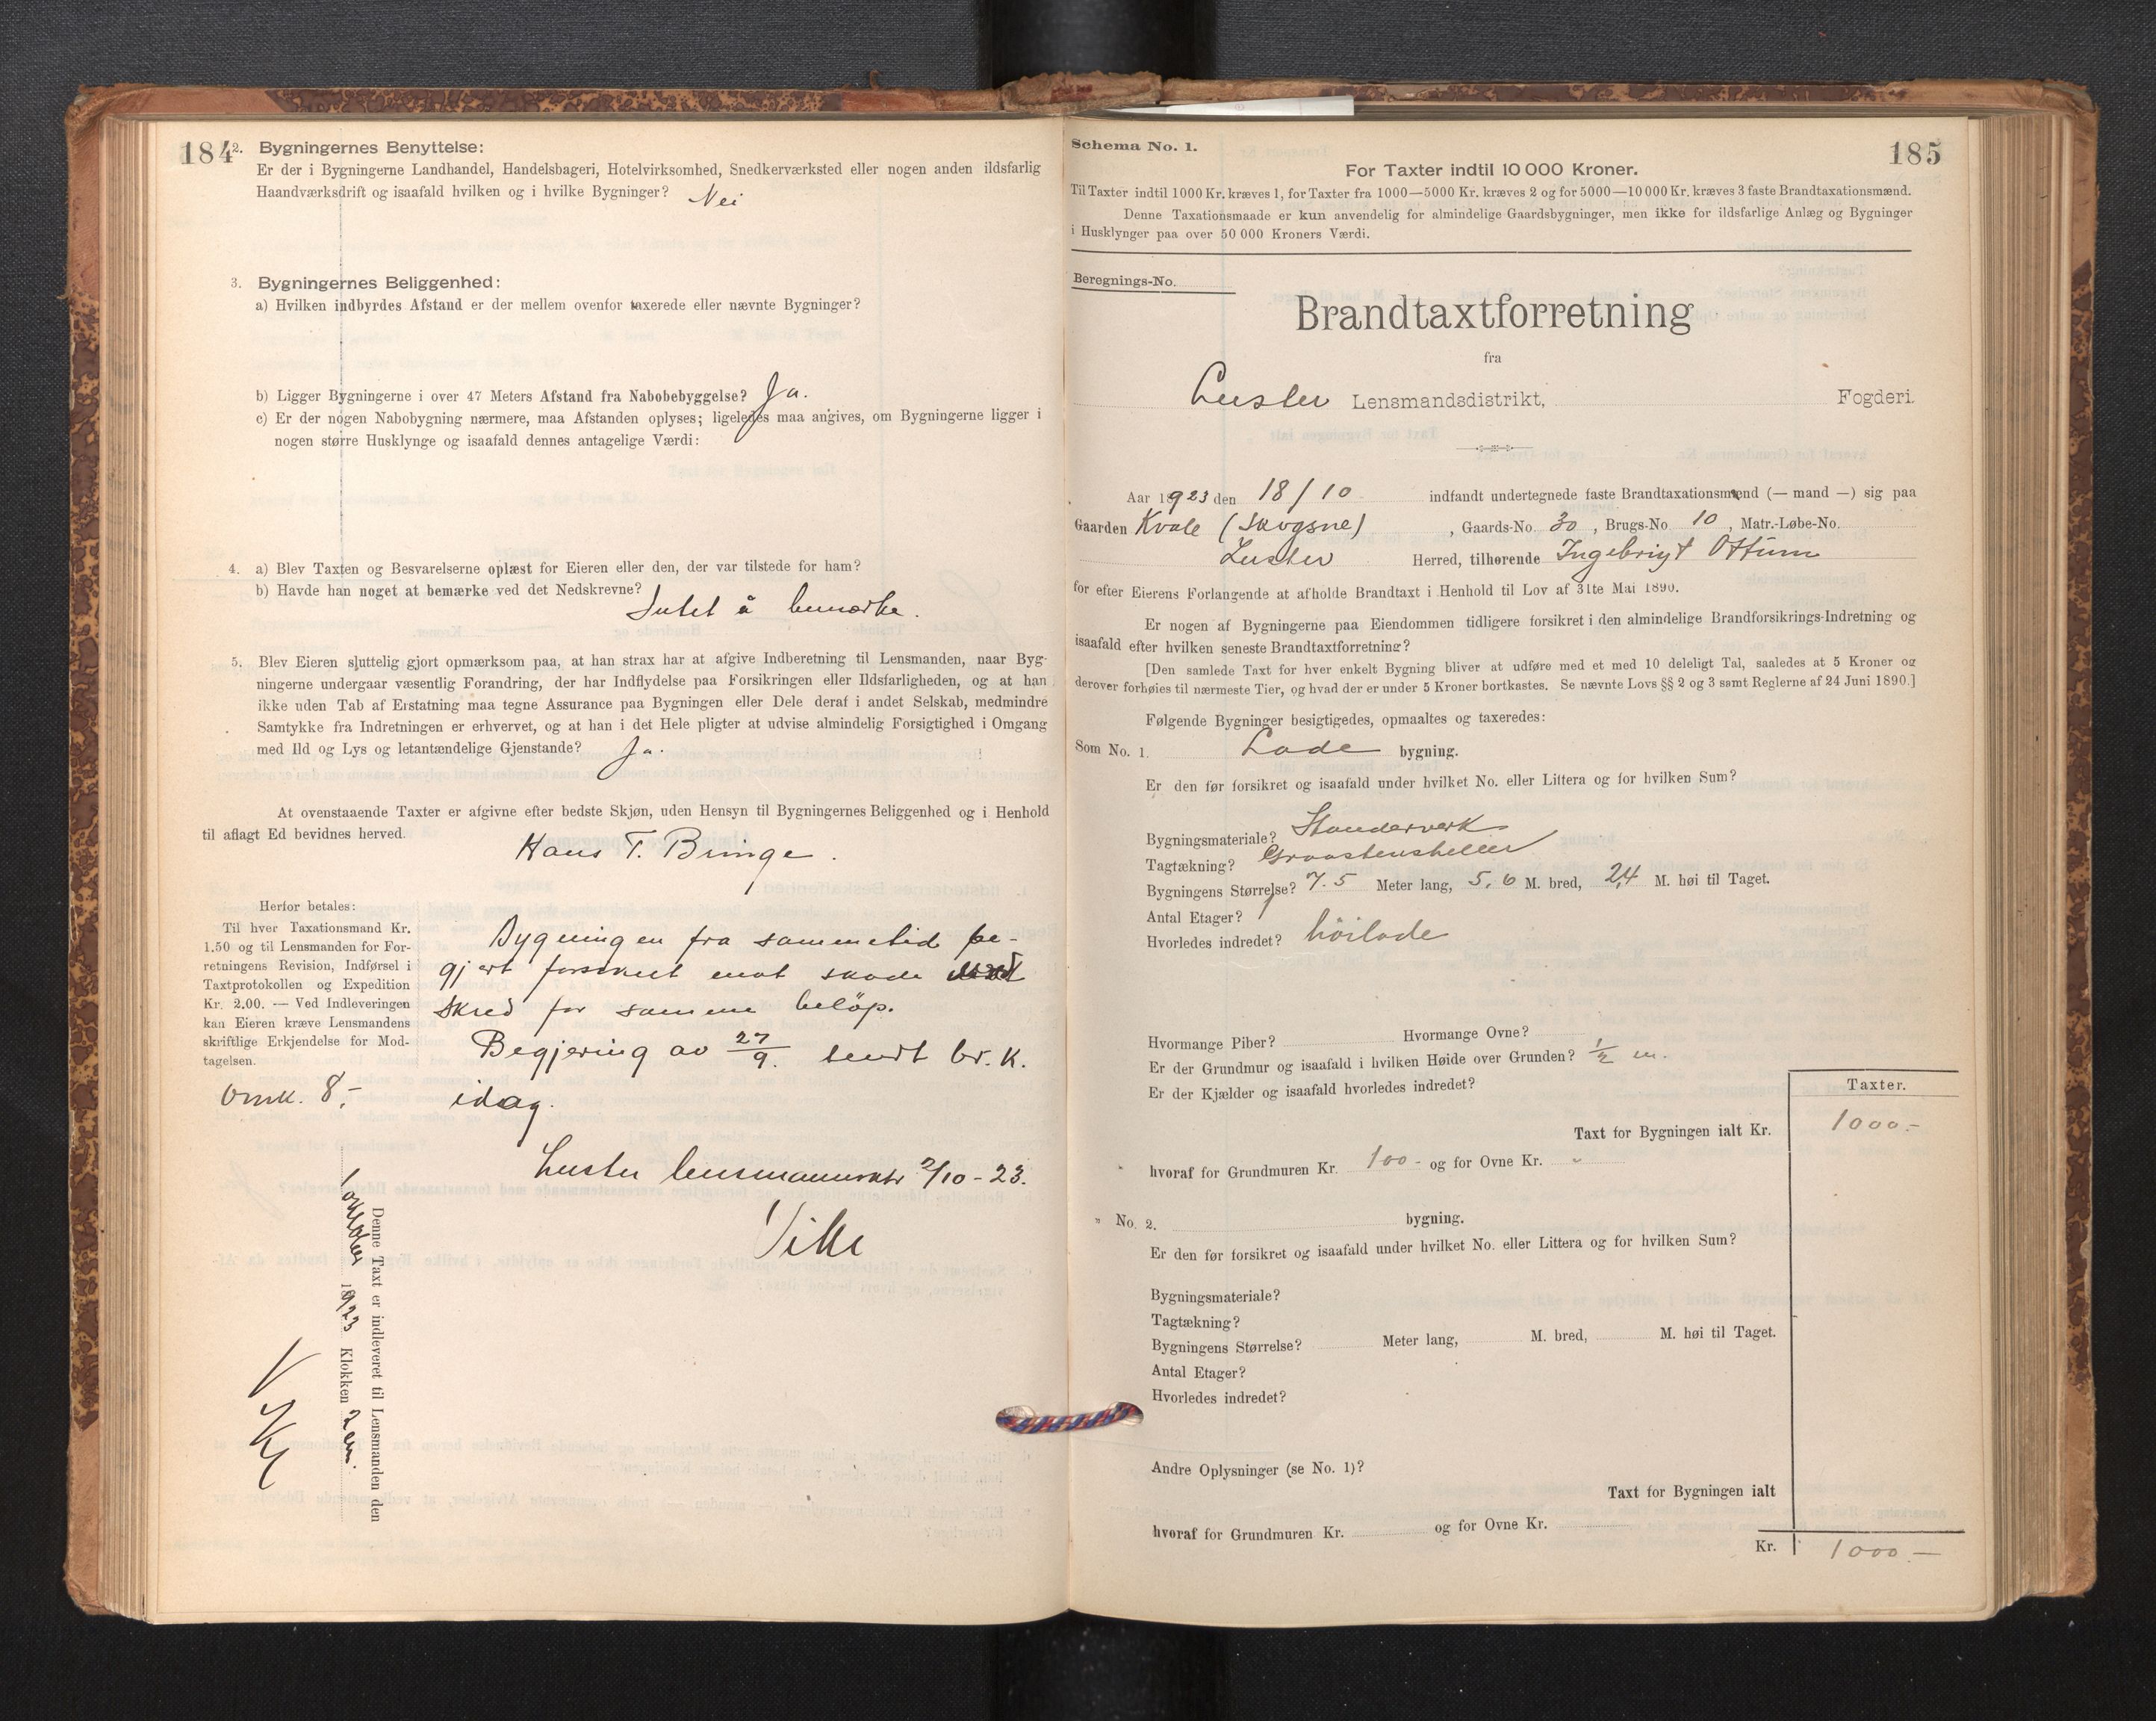 184
2. Bygningernes Benyttelse:
Er der i Bygningerne Landhandel, Handelsbageri, Hotelvirksomhed, Snedkerværksted eller nogen anden ildsfarlig
Haandværksdrift og isaafald hvilken og i hvilke Bygninger? Nei
3. Bygningernes Beliggenhed:
a) Hvilken indbyrdes Afstand er der mellem ovenfor taxerede eller nævnte Bygninger?
b) Ligger Bygningerne i over 47 Meters Afstand fra Nabobebyggelse? Ja.
c) Er der nogen Nabobygning nærmere, maa Afstanden oplyses; ligeledes maa angives, om Bygningerne ligger i
nogen større Husklynge og isaafald dennes antagelige Værdi:
4. a) Blev Taxten og Besvarelserne oplæst for Eieren eller den, der var tilstede for ham?
b) Havde han noget at bemærke ved det Nedskrevne? Intet å bemærke.
5. Blev Eieren sluttelig gjort opmærksom paa, at han strax har at afgive Indberetning til Lensmanden, naar Byg-
ningerne undergaar væsentlig Forandring, der har Indflydelse paa Forsikringen eller Ildsfarligheden, og at han
ikke uden Tab af Erstatning maa tegne Assurance paa Bygningen eller Dele deraf i andet Selskab, medmindre
Samtykke fra Indretningen er erhvervet, og at han i det Hele pligter at udvise almindelig Forsigtighed i Omgang
med Ild og Lys og letantændelige Gjenstande? Ja.
At ovenstaaende Taxter er afgivne efter bedste Skjøn, uden Hensyn til Bygningernes Beliggenhed og i Henhold
til aflagt Ed bevidnes herved.
Hans T. Bringe.
Herfor betales:
Til hver Taxationsmand Kr.
1.50 og til Lensmanden for For-
retningens Revision, Indførsel i
Taxtprotokollen og Expedition
Kr. 2.00. — Ved Indleveringen
kan Eieren kræve Lensmandens
skriftlige Erkjendelse for Mod-
tagelsen.
Omk. 8,-
Bygningen fra samme tid be-
gjært forsikret mot skade ved
skred for samme beløp.
Begjæring av 27/9. sendt br. K.
idag.
Luster lensmannsktr 2/10-23.
Vike
Denne Taxt er indleveret til Lensmanden den
1 oktober 1923 Klokken 2 em.
185
Schema No. 1.
For Taxter indtil 10 000 Kroner.
Til Taxter indtil 1000 Kr. kræves 1, for Taxter fra 1000—5000 Kr. kræves 2 og for 5000—10 000 Kr. kræves 3 faste Brandtaxationsmænd.
Denne Taxationsmaade er kun anvendelig for almindelige Gaardsbygninger, men ikke for ildsfarlige Anlæg og Bygninger
i Husklynger paa over 50 000 Kroners Værdi.
Beregnings-No.
Brandtaxtforretning
fra
Luster Lensmandsdistrikt, Fogderi.
Aar 1923 den 18/10 indfandt undertegnede faste Brandtaxationsmænd (— mand —) sig paa
Gaarden Kvale (Skogsne), Gaards-No. 30, Brugs-No 10, Matr.-Løbe-No.
Luster Herred, tilhørende Ingebrigt Ottum
for efter Eierens Forlangende at afholde Brandtaxt i Henhold til Lov af 31te Mai 1890.
Er nogen af Bygningerne paa Eiendommen tidligere forsikret i den almindelige Brandforsikrings-Indretning og
isaafald efter hvilken seneste Brandtaxtforretning?
[Den samlede Taxt for hver enkelt Bygning bliver at udføre med et med 10 deleligt Tal, saaledes at 5 Kroner og
derover forhøies til nærmeste Tier, og hvad der er under 5 Kroner bortkastes. Se nævnte Lovs §§ 2 og 3 samt Reglerne af 24 Juni 1890.]
Følgende Bygninger besigtigedes, opmaaltes og taxeredes:
Som No. 1. Lade bygning.
Er den før forsikret og isaafald under hvilket No. eller Littera og for hvilken Sum?
Bygningsmateriale? Standerverk
Tagtækning? Graastensheller
Bygningens Størrelse? 7.5 Meter lang, 5,6 M. bred, 2,4 M. høi til Taget.
Antal Etager? 1
Hvorledes indredet? höilade
Hvormange Piber? Hvormange Ovne?
Er der Grundmur og isaafald i hvilken Høide over Grunden? ½ m.
Er der Kjælder og isaafald hvorledes indredet?
Taxter.
Taxt for Bygningen ialt Kr. 1000.-
hvoraf for Grundmuren Kr. 100- og for Ovne Kr. -
" No. 2. bygning.
Er den før forsikret og isaafald under hvilket No. eller Littera og for hvilken Sum?
Bygningsmateriale?
Tagtækning?
Bygningens Størrelse? Meter lang, M. bred, M. høi til Taget.
Antal Etager?
Hvorledes indredet?
Andre Oplysninger (se No. 1)?
Taxt for Bygningen ialt
hvoraf for Grundmuren Kr. og for Ovne Kr.
Kr. 1000.-